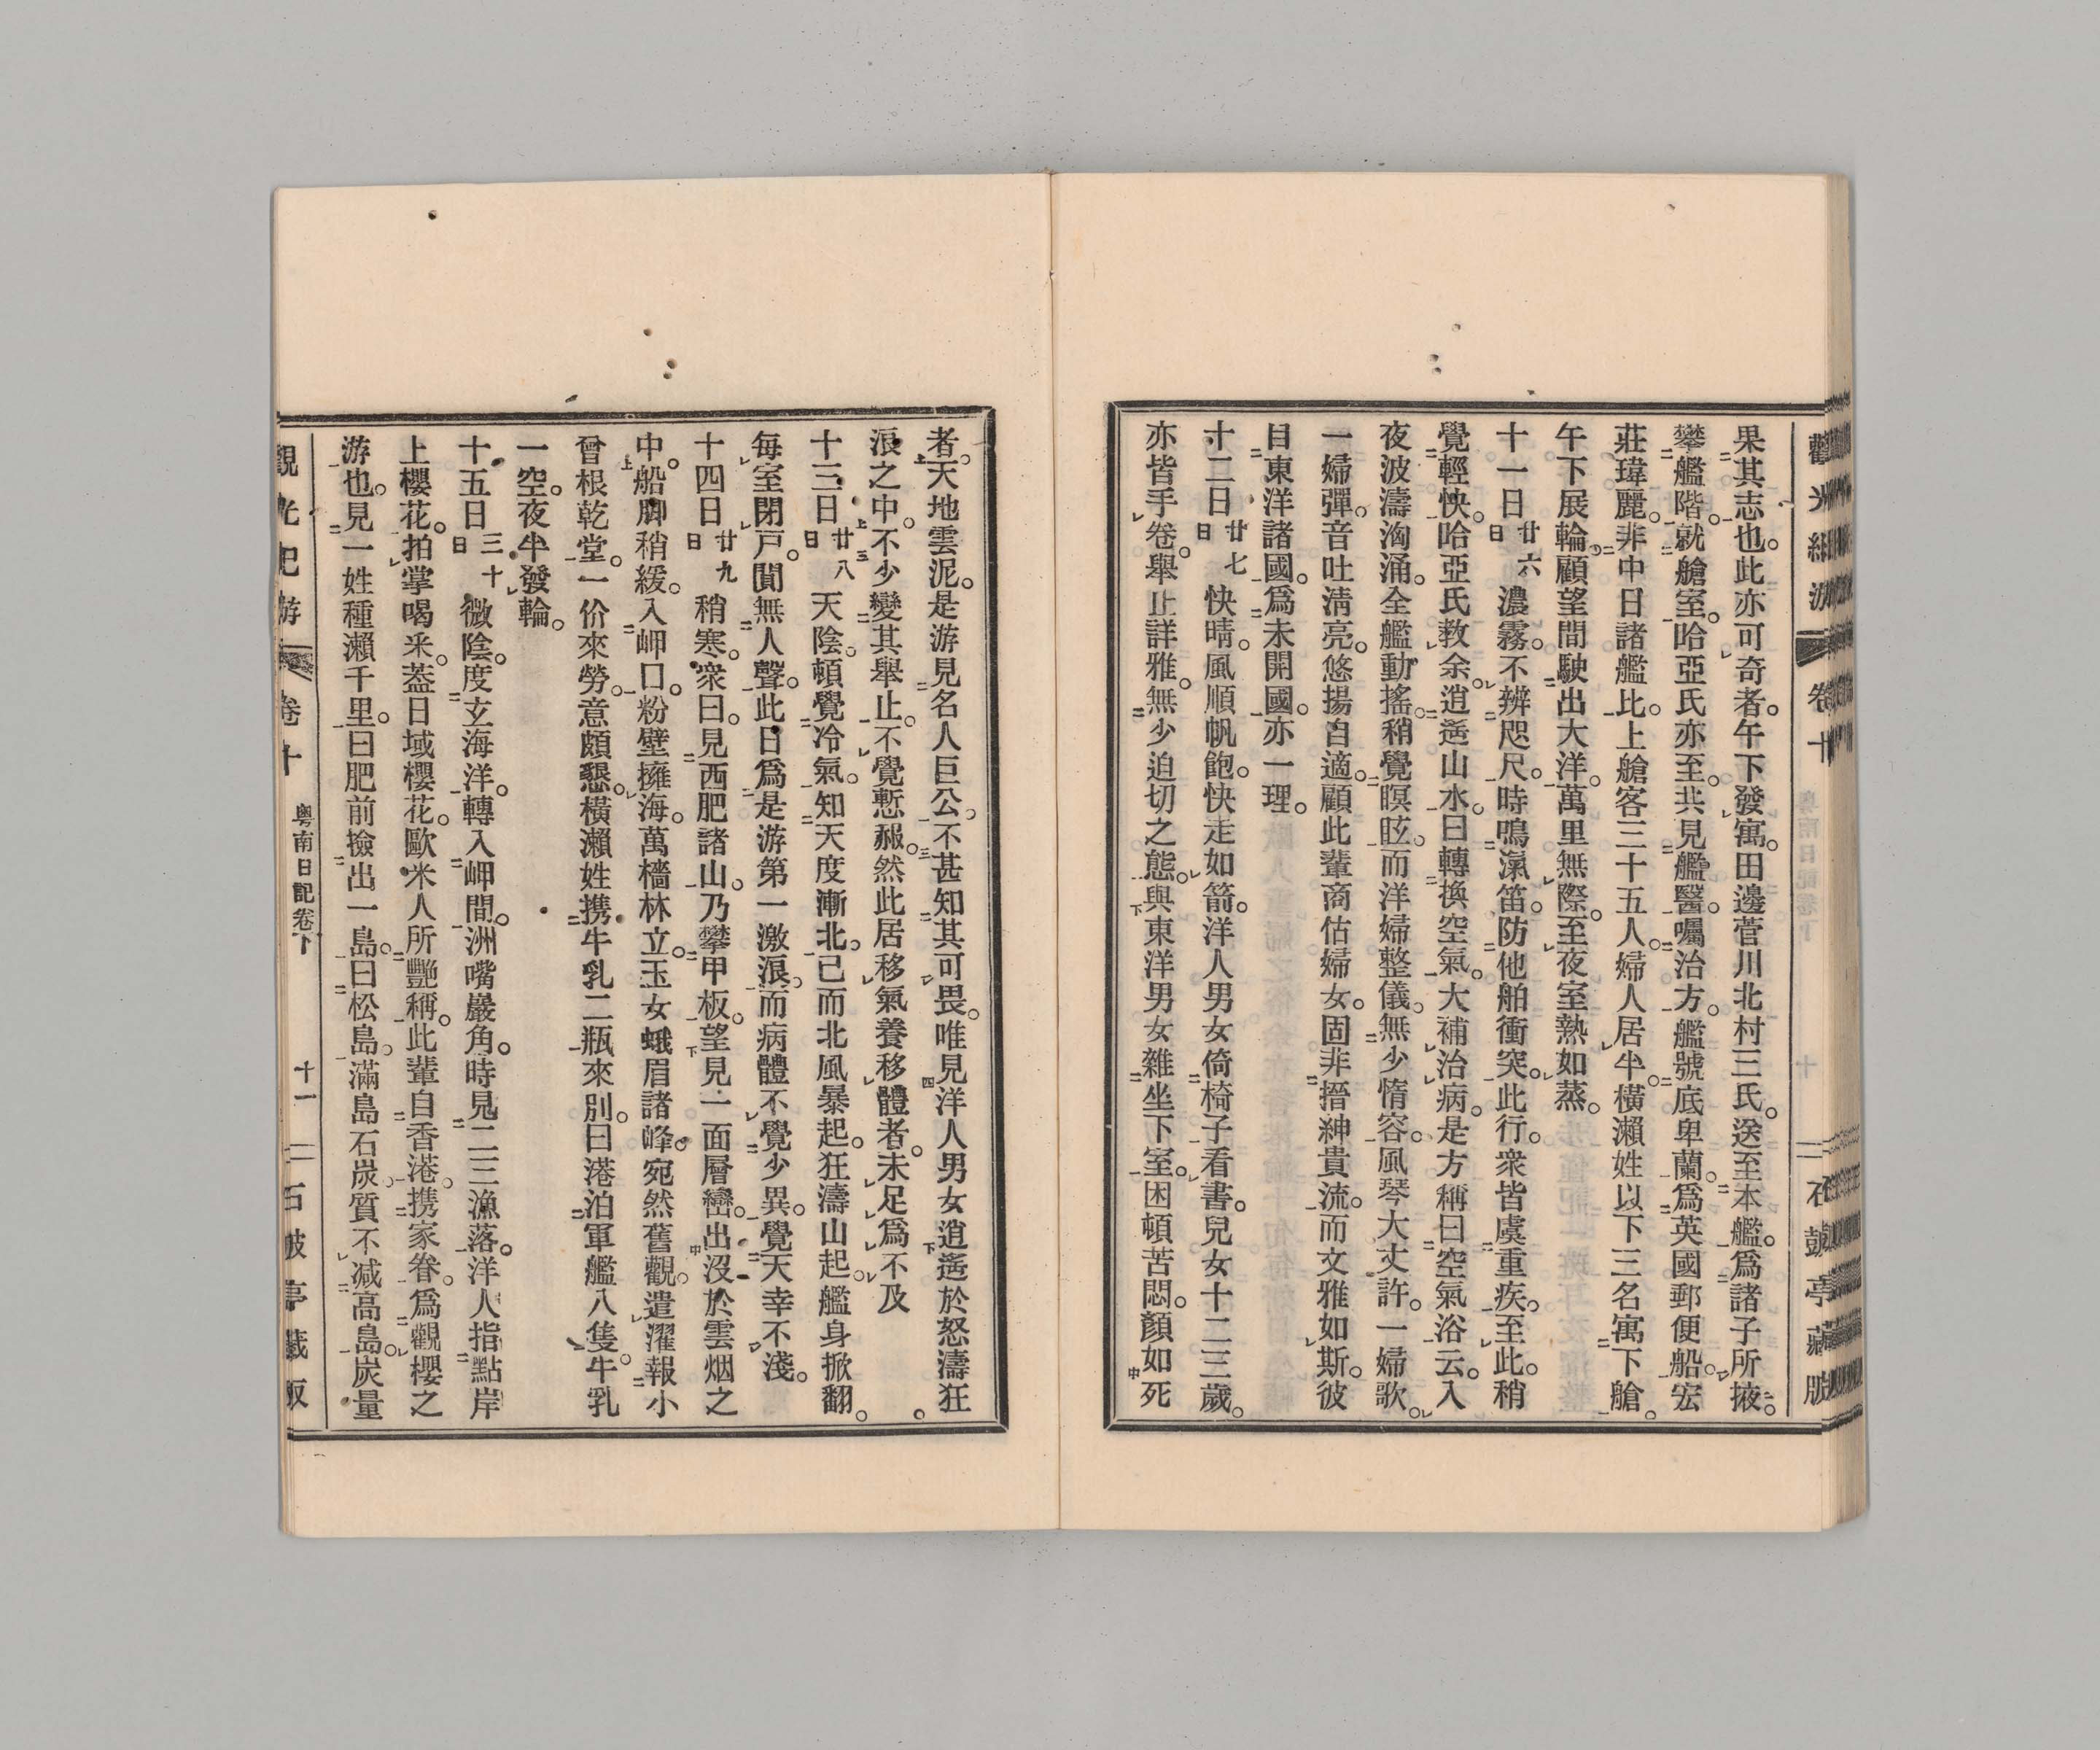 觀光紀游 卷十 石鼓亭藏版
果其志也。此亦可奇者。午下發寓。田邊菅川北村三氏。送至本艦。爲諸子所掖。
攀艦階。就艙室。哈亞氏亦至。共見艦醫。囑治方。艦號底卑蘭。爲英國郵便船。宏
莊瑋麗。非中日諸艦比。上艙客三十五人。婦人居半。橫瀨姓以下三名寓下艙。
午下展輪。顧望間駛出大洋。萬里無際。至夜室熱如蒸。
十一日廿六日濃霧。不辨咫尺。時鳴滊笛。防他舶衝突。此行。衆皆虞重疾。至此。稍
覺輕快。哈亞氏敎余。逍遙山水。曰轉換空氣。大補治病。是方稱曰空氣浴云。入
夜波濤洶涌。全艦動搖。稍覺瞑眩。而洋婦整儀。無少惰容。風琴大丈許。一婦歌。
一婦彈。音吐淸亮。悠揚自適。顧此輩商估婦女。固非搢紳貴流。而文雅如斯。彼
目東洋諸國。爲未開國。亦一理。
十二日廿七日快晴。風順帆飽。快走如箭。洋人男女倚椅子看書。兒女十二三歲。
亦皆手卷。舉止詳雅。無少迫切之態。與東洋男女雜坐下室。困頓苦悶。顏如死
者。天地雲泥。是游見名人巨公。不甚知其可畏。唯見洋人男女逍遙於怒濤狂
浪之中。不少變其舉止。不覺慙赧。然此居移氣養移體者。未足爲不及。
十三日廿八日天陰。頓覺冷氣。知天度漸北。已而北風暴起。狂濤山起。艦身掀翻。
每室閉戶。闃無人聲。此日爲是游第一激浪。而病體不覺少異。覺天幸不淺。
十四日廿九日稍寒。衆曰。見西肥諸山。乃攀甲板。望見一面層巒。出沒於雲烟之
中。船脚稍緩。入岬口。粉壁擁海。萬檣林立。玉女蛾眉諸峰。宛然舊觀。遣濯報小
曾根乾堂。一价來勞。意頗懇。橫瀨姓携牛乳二瓶來別。曰港泊軍艦八隻。牛乳
一空。夜半發輪。
十五日三十日微陰。度玄海洋。轉入岬間。洲嘴巖角。時見二三漁落。洋人指點岸
上櫻花。拍掌喝釆。蓋日域櫻花。歐米人所艷稱。此輩自香港。携家眷。爲觀櫻之
游也。見一姓種瀨千里。曰肥前撿出一島。曰松島。滿島石炭質不减高島。炭量
觀光紀游 卷十 粤南日記卷下 十一 石鼓亭藏版